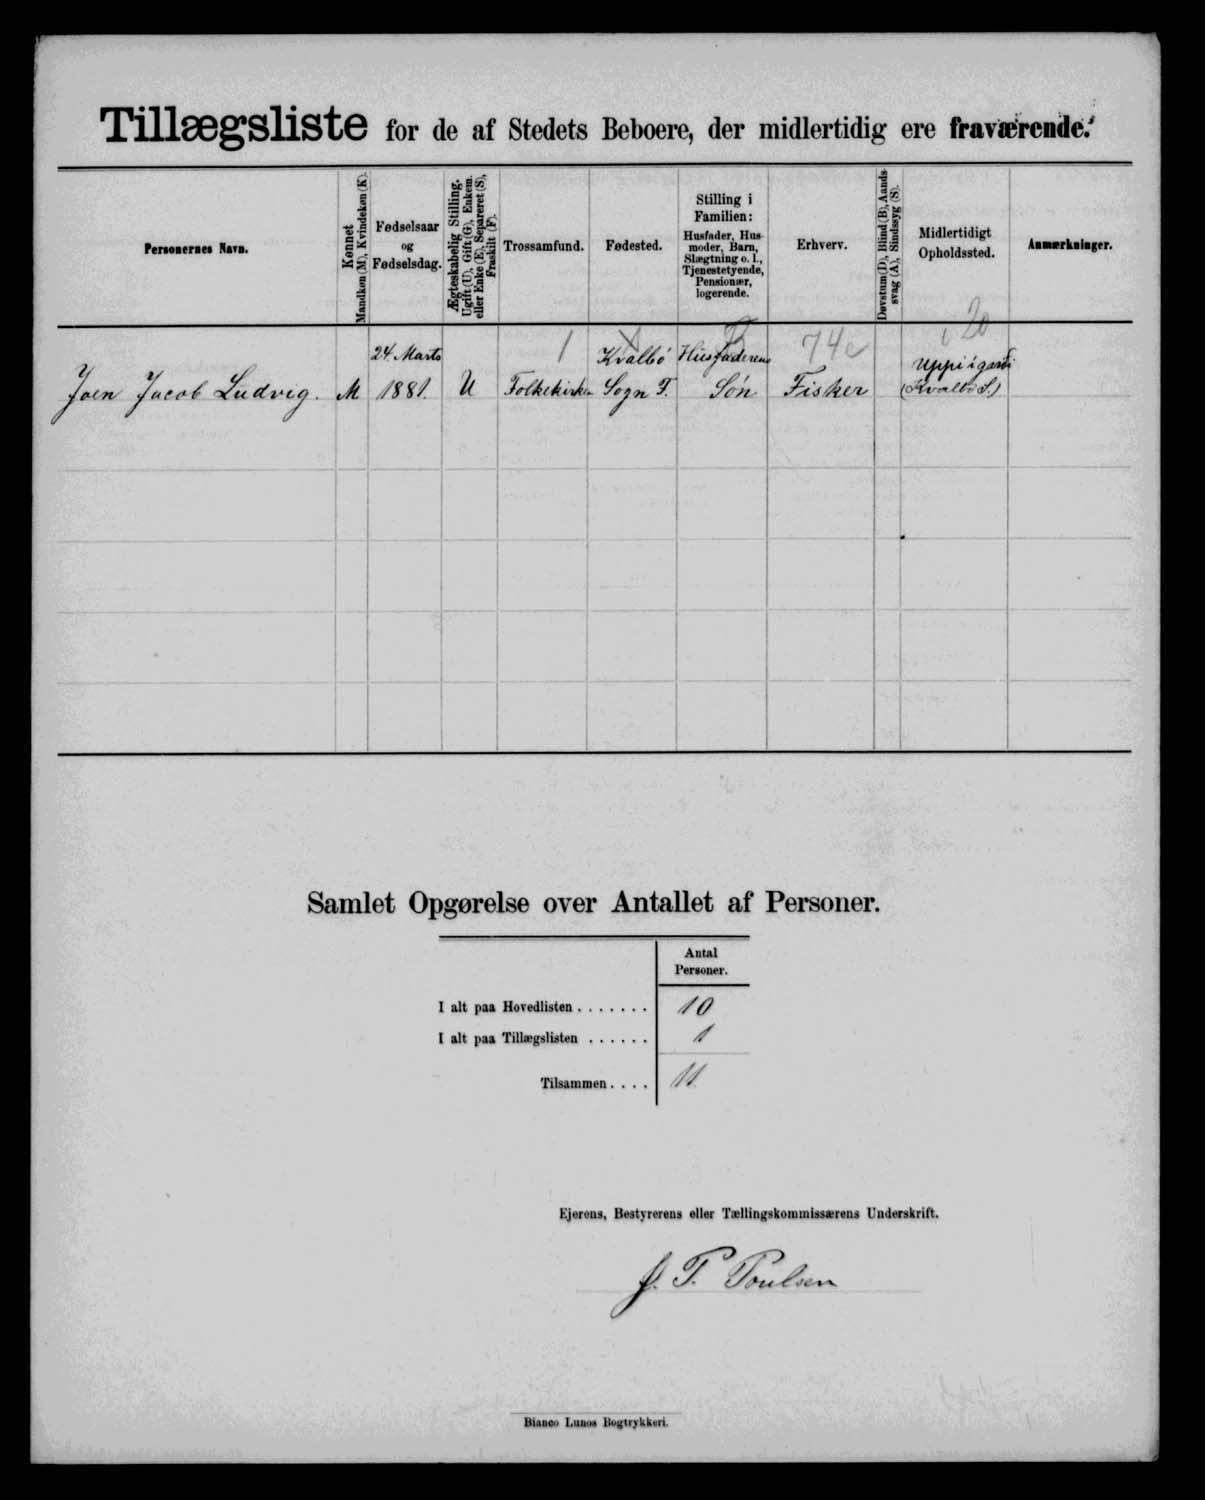 Tillægsliste for de af Stedets Beboere, der midlertidig ere fraværende.
Personernes Navn.
Kønnet
Mandkøn (M), Kvindekøn (K).
Fødselsaar
og
Fødselsdag.
Ægteskabelig Stilling.
Ugift (U), Gift (G), Enkem.
eller Enke (E), Separeret (S),
Fraskilt (F).
Trossamfund.
Fødested.
Stilling i
Familien:
Husfader, Hus-
moder, Barn,
Slægtning o. l.,
Tjenestetyende,
Pensionær,
logerende.
Erhverv.
Døvstum (D), Blind (B), Aands-
svag (A), Sindssyg (S).
Midlertidigt
Opholdssted.
Anmærkninger.
1 74c 20
24. Marts Kvalbø Husfaderens Uppiigardi
Joen Jacob Ludvig. M 1881. U Folkekirken Sogn F. Søn Fisker (Kvalbø S.)
Samlet Opgørelse over Antallet af Personer.
Antal
Personer.
I alt paa Hovedlisten . . . . . . . 10
I alt paa Tillægslisten . . . . . . 1
Tilsammen . . . . 11.
Ejerens, Bestyrerens eller Tællingskommissærens Underskrift.
J. P. Poulsen
Bianco Lunos Bogtrykkeri.